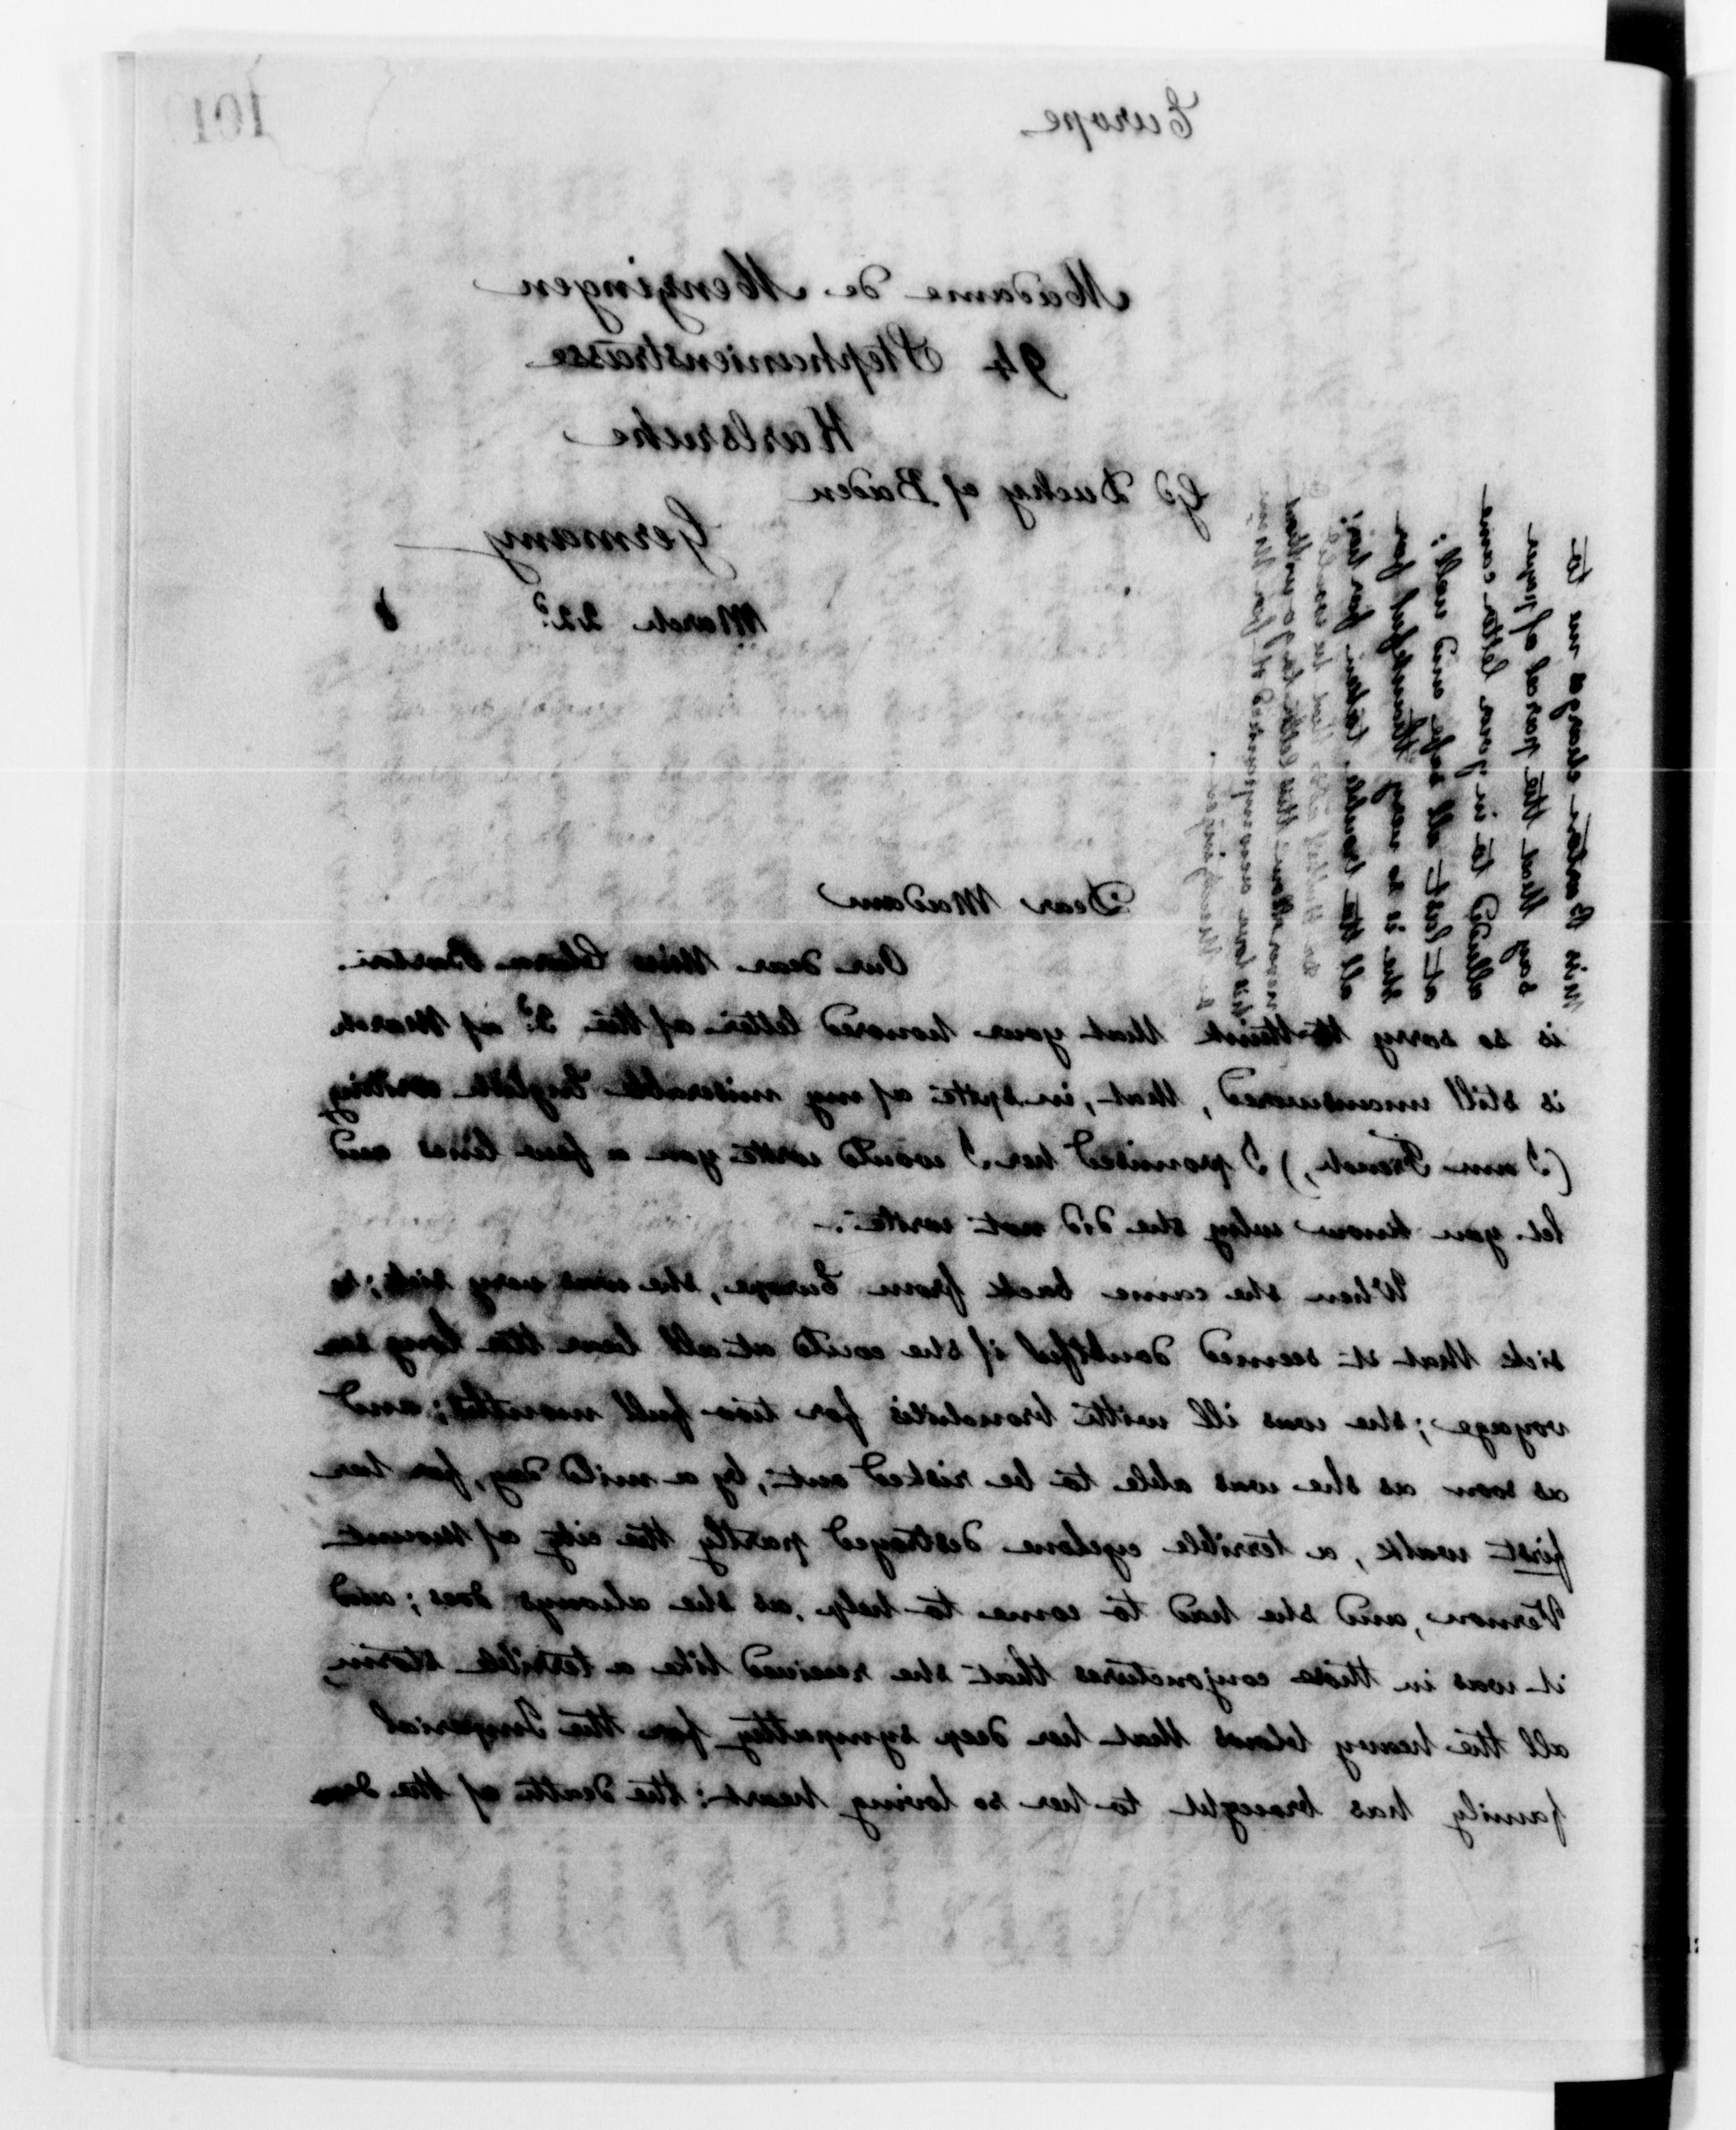 Europe
101
Madame de Menzingen
94 Stephanienstrasse
Karlsruhe
Gd Duchy of Baden
Germany
March 22d
Dear Madam
Our dear Miss Clara Barton
is so sorry to think that your honored letter of the 3d of March
is still unanswered, that, in spite of my miserable English writing
(I am French,) I promised her I would write you a few lines and
let you know why she did not write.
When she came back from Europe, she was very sick; so
sick that it seemed doubtful if she could at all bear the long sea
voyage; she was ill with bronchitis for two full months; and
as soon as she was able to be risked out, by a mild day, for her
first walk, a terrible cyclone destroyed partly the city of Mount
Vernon, and she had to come to help, as she always does; and
it was in those conjonctures that she received like a terrible storm,
all the heavy blows that her deep sympathy for the Imperial
family has brought to her so loving heart: the death of the dear
Miss Barton charges me to
say that the parcel of paper
alluded to in your letter came
at last all safe and well;
she is so very thankful for
all the trouble taken for her!